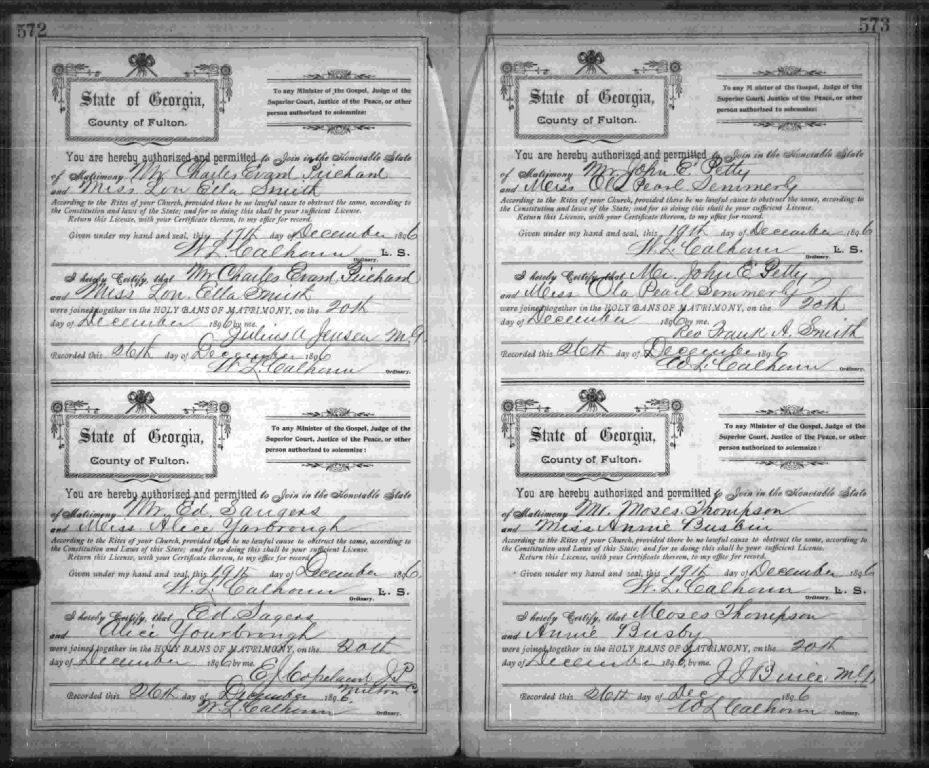 572
State of Georgia,
County of Fulton.
To any Minister of the Gospel, Judge of the
Superior Court, Justice of the Peace, or other
person authorized to solemnize:
You are hereby authorized and permitted to Join in the Honorable State
of Matrimony Mr. Charles Evant Prichard
and Miss Lou Ella Smith
According to the Rites of your Church, provided there be no lawful cause to obstruct the same, according to
the Constitution and laws of the State; and for so doing this shall be your sufficient License.
Return this License, with your Certificate thereon, to my office for record.
Given under my hand and seal, this 19th day of December 1896
W. L. Calhoun L. S.
Ordinary.
I hereby Certify, that Mr Charles Evant Prichard
and Miss Lou. Ella Smith
were joined together in the HOLY BANS OF MATRIMONY, on the 20th
day of December 1896 by me.
Julius A Jensen M.G
Recorded this 26th day of December 1896
W. L. Calhoun
Ordinary.
State of Georgia,
County of Fulton.
To any Minister of the Gospel, Judge of the
Superior Court, Justice of the Peace, or other
person authorized to solemnize:
You are hereby authorized and permitted to Join in the Honorable State
of Matrimony Mr. Ed. Saugers
and Miss Alice Yarbrough
According to the Rites of your Church, provided there be no lawful cause to obstruct the same, according to
the Constitution and Laws of this State; and for so doing this shall be your sufficient License.
Return this License, with your Certificate thereon, to my office for record.
Given under my hand and seal, this 19th day of December 1896
W. L. Calhoun L. S.
Ordinary.
I hereby Certify, that Ed. Sagers
and Alice Yourbrough
were joined together in the HOLY BANS OF MATRIMONY, on the 20th
day of December 1896 by me.
E J Copeland J.P.
Milton C
Recorded this 26th day of December 1896
W. L. Calhoun
Ordinary.
573
State of Georgia,
County of Fulton.
To any Minister of the Gospel, Judge of the
Superior Court, Justice of the Peace, or other
person authorized to solemnize:
You are hereby authorized and permitted to Join in the Honorable State
of Matrimony Mr. John E. Petty
and Miss Ola Pearl Semmerly
According to the Rites of your Church, provided there be no lawful cause to obstruct the same, according to
the Constitution and laws of the State; and for so doing this shall be your sufficient License.
Return this License, with your Certificate thereon, to my office for record.
Given under my hand and seal, this 19th day of December 1896
W. L. Calhoun L. S.
Ordinary.
I hereby Certify, that Mr. John E Petty
and Miss Ola Pearl Semmerly
were joined together in the HOLY BANS OF MATRIMONY, on the 20th
day of December 1896 by me.
Rev Frank A. Smith
Recorded this 26th day of December 1896
W. L. Calhoun
Ordinary.
State of Georgia,
County of Fulton.
To any Minister of the Gospel, Judge of the
Superior Court, Justice of the Peace, or other
person authorized to solemnize:
You are hereby authorized and permitted to Join in the Honorable State
of Matrimony Mr. Moses Thompson
and Miss Annie Busbin
According to the Rites of your Church, provided there be no lawful cause to obstruct the same, according to
the Constitution and Laws of this State; and for so doing this shall be your sufficient License.
Return this License, with your Certificate thereon, to my office for record.
Given under my hand and seal, this 19th day of December 1896
W. L. Calhoun L. S.
Ordinary.
I hereby Certify, that Moses Thompson
and Annie Busby
were joined together in the HOLY BANS OF MATRIMONY, on the 20th
day of December 1896 by me.
J J M.G.
Recorded this 26th day of Dec 1896
W L Calhoun
Ordinary.